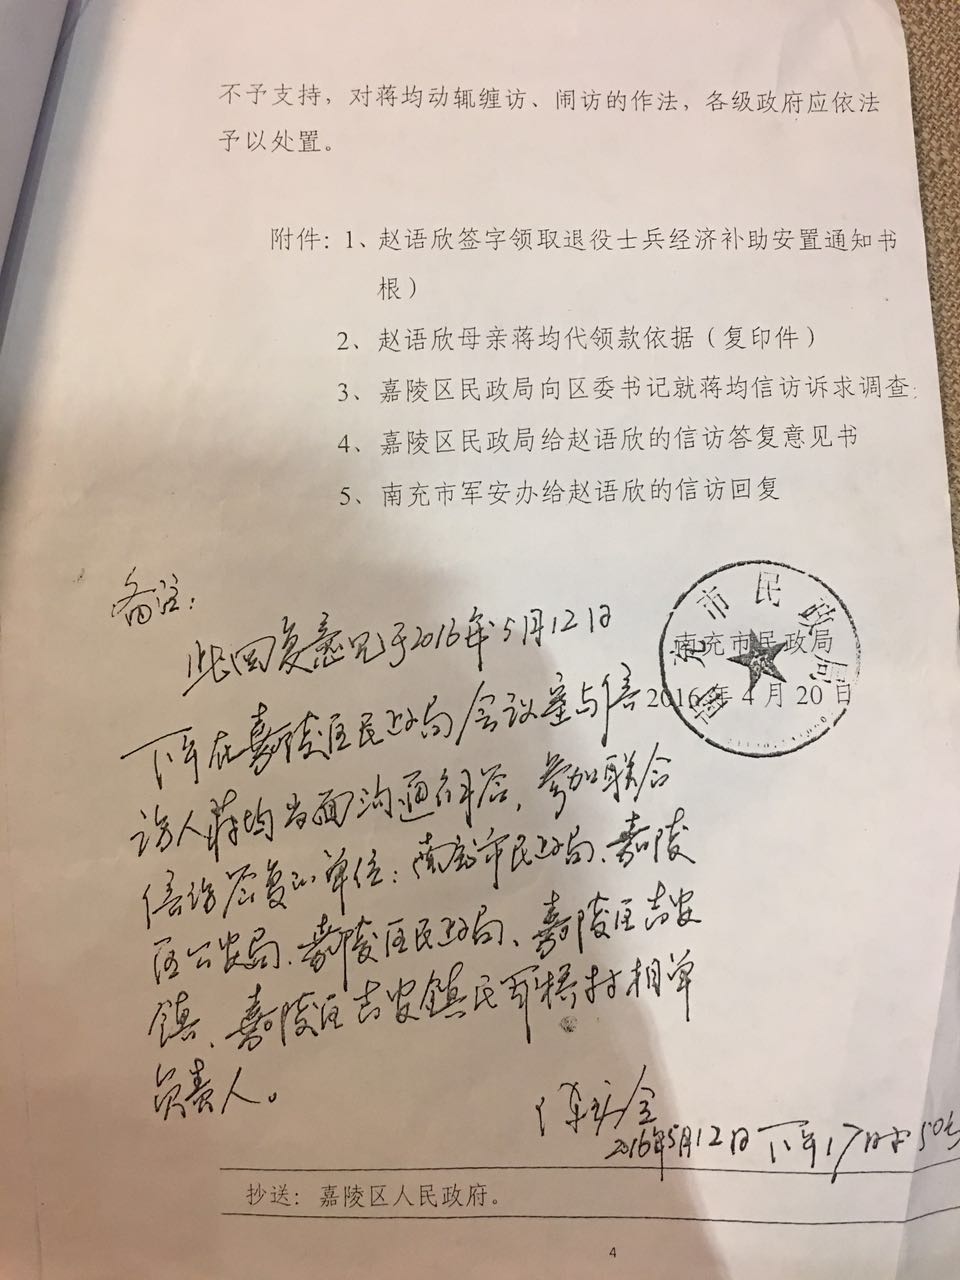 不予支持，对蒋均动辄缠访、闹访的作法，各级政府应依法
予以处置。
附件：1、赵语欣签字领取退役士兵经济补助安置通知书
根）
2、赵语欣母亲蒋均代领款依据（复印件）
3、嘉陵区民政局向区委书记就蒋均信访诉求调查
4、嘉陵区民政局给赵语欣的信访答复意见书
5、南充市军安办给赵语欣的信访回复
备注：
南充市民政局
南充市民政局
2016年4月20日
此回复意见于2016年5月12日
下午在嘉陵区民政局会议室与信
访人蒋均当面沟通，参加联合
信访答复的单位：南充市民政局、嘉陵
区公安局、嘉陵区民政局、嘉陵区吉安
镇、嘉陵区吉安镇村相单
负责人。
2016年5月12日下午17时50
抄送：嘉陵区人民政府。
4